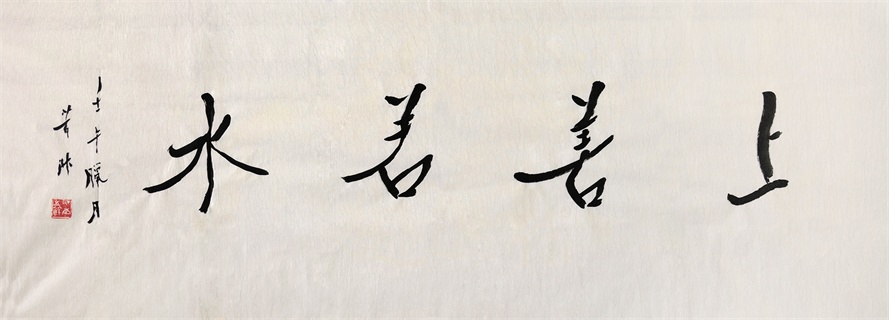 上善若水
壬午腊月